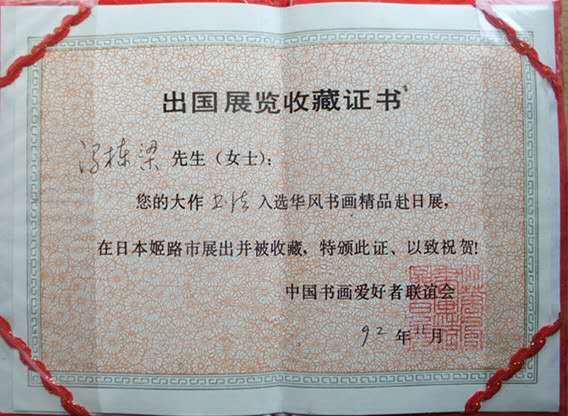 出国展览收藏证书
栋梁 先生（女士）：
您的大作 书法 入选华风书画精品赴日展，
在日本姬路市展出并被收藏，特颁此证、以致祝贺！
中国书画爱好者联谊会
92 年 11 月